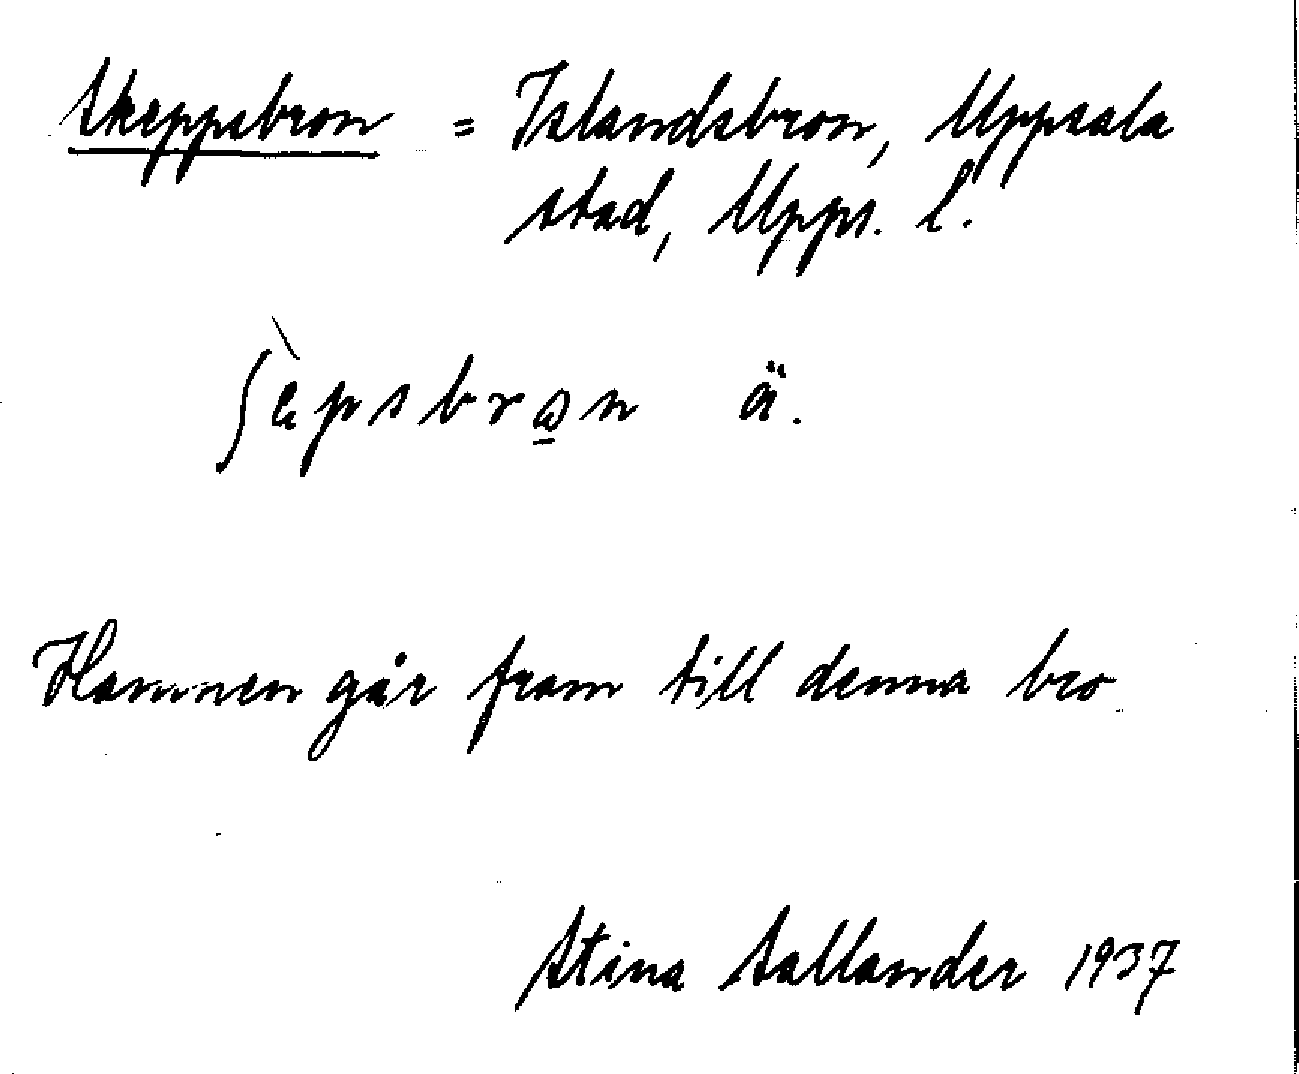 Skeppsbron = Islandsbron, Uppsala
stad, Upps. l.
ʃèpsbrωn ä.
Hamnen går fram till denna bro
Stina Sallander 1937